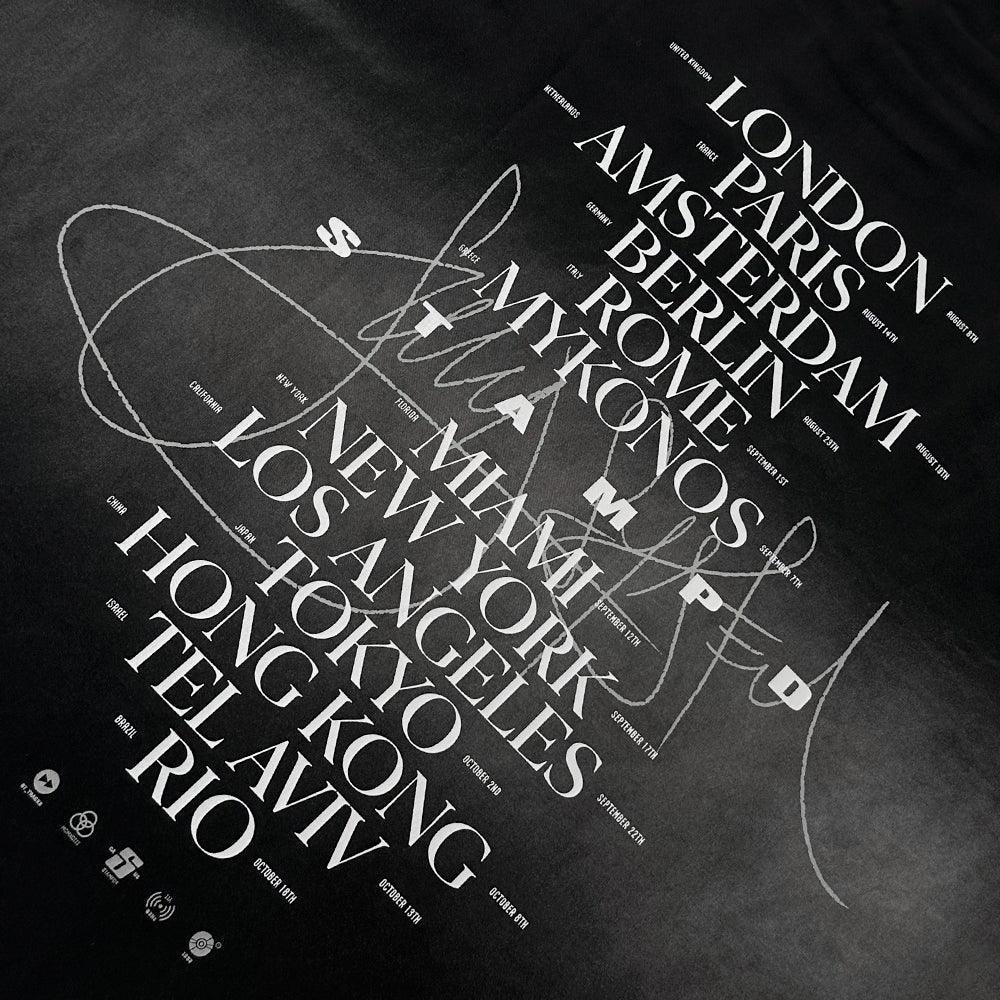 UNITED KINGDOM LONDON AUGUST 8TH
FRANCE PARIS AUGUST 14TH
NETHERLANDS AMSTERDAM AUGUST 18TH
GERMANY BERLIN AUGUST 23TH
ITALY ROME SEPTEMBER 1ST
GREECE MYKONOS SEPTEMBER 7TH
STAMPD
FLORIDA MIAMI SEPTEMBER 12TH
NEW YORK NEW YORK SEPTEMBER 17TH
CALIFORNIA LOS ANGELES SEPTEMBER 22TH
JAPAN TOKYO OCTOBER 2ND
CHINA HONG KONG OCTOBER 8TH
ISRAEL TEL AVIV OCTOBER 13TH
BRAZIL RIO OCTOBER 18TH